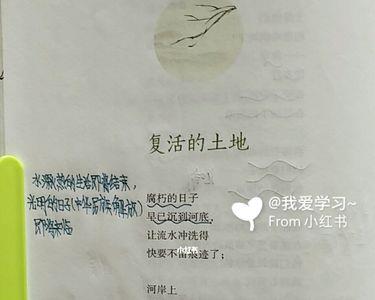 复活的土地
水深火热的生活即将结束，
光明的日子(中华民族解放)
即将来临
腐朽的日子
早已沉到河底，
让流水冲洗得
快要不留痕迹了；
河岸上
@我爱学习~
From 小红书
小红书